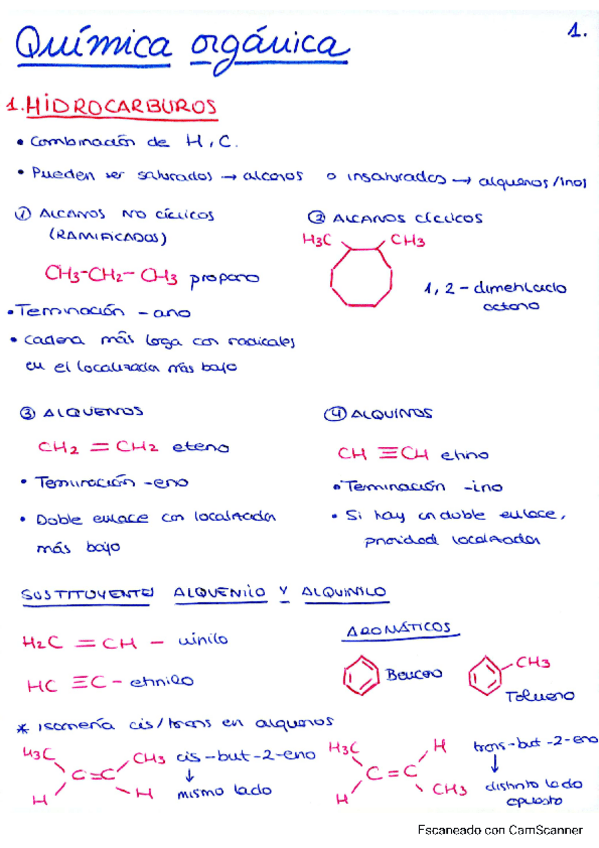 Química orgánica
1.
1. HIDROCARBUROS
• Combinación de H, C.
• Pueden ser saturados → alcanos o insaturados → alquenos/inos
① ALCANOS NO CÍCLICOS
(RAMIFICADOS)
CH3-CH2-CH3 propano
• Terminación -ano
• Cadena más larga con radicales
en el localizador más bajo
② ALCANOS CÍCLICOS
H3C CH3
1,2-dimetilciclo
octano
③ ALQUENOS
CH2=CH2 eteno
• Terminación -eno
• Doble enlace con localizador
más bajo
④ ALQUINOS
CH≡CH etino
• Terminación -ino
• Si hay un doble enlace,
prioridad localizador
SUSTITUYENTES ALQUENILO Y ALQUINILO
H2C=CH- vinilo
HC≡C- etinilo
AROMÁTICOS
Benceno
CH3
Tolueno
* Isomería cis/trans en alquenos
H3C CH3
C=C
H H
cis-but-2-eno
↓
mismo lado
H3C H
C=C
H CH3
trans-but-2-eno
↓
distinto lado
opuesto
Escaneado con CamScanner